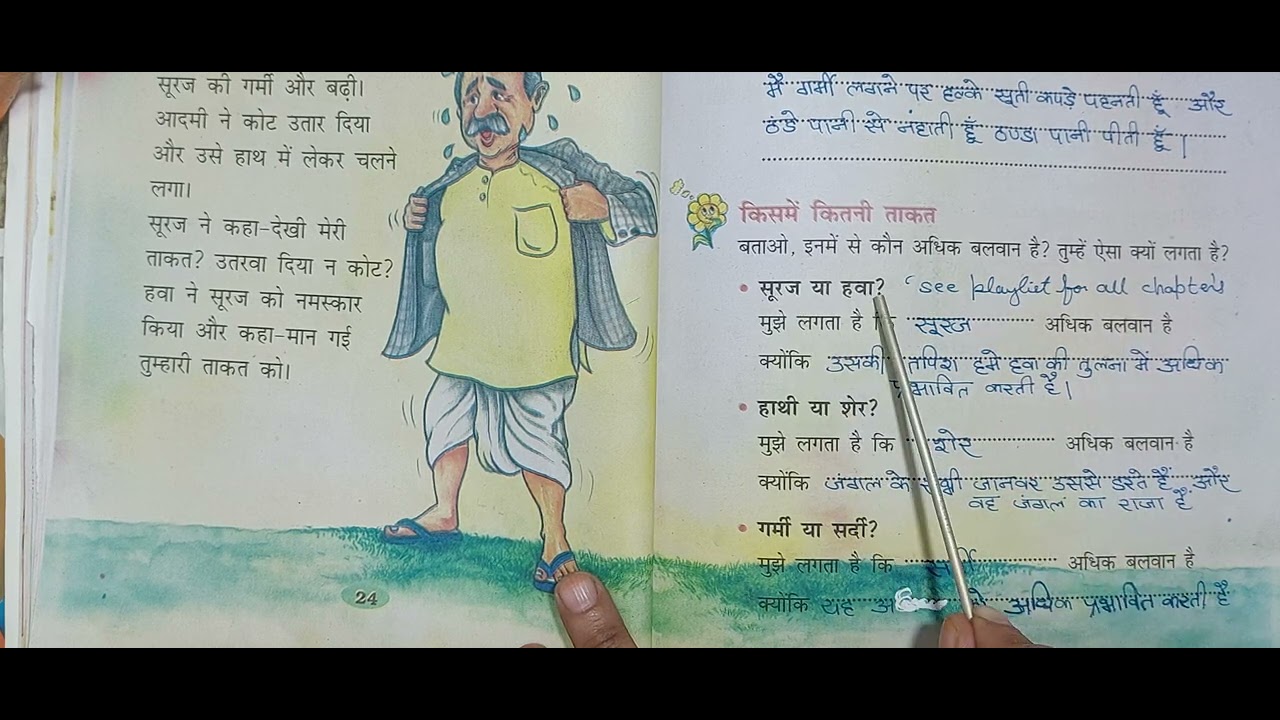 सूरज की गर्मी और बढ़ी।
आदमी ने कोट उतार दिया
और उसे हाथ में लेकर चलने
लगा।
सूरज ने कहा-देखी मेरी
ताकत? उतरवा दिया न कोट?
हवा ने सूरज को नमस्कार
किया और कहा-मान गई
तुम्हारी ताकत को।
24
मैं गर्मी लगने पर हल्के सूती कपड़े पहनती हूँ और
ठंडे पानी से नंहाती हूँ ठण्डा पानी पीती हूँ।
किसमें कितनी ताकत
बताओ, इनमें से कौन अधिक बलवान है? तुम्हें ऐसा क्यों लगता है?
• सूरज या हवा? see playlist for all chapters
मुझे लगता है सूरज अधिक बलवान है
क्योंकि उसकी तपिश हमे हवा की तुलना में अधिक
प्रभावित करती है।
• हाथी या शेर?
मुझे लगता है कि शेर अधिक बलवान है
क्योंकि जंगल के सभी जानवर उससे डरते हैं और
वह जंगल का राजा है
• गर्मी या सर्दी?
मुझे लगता है कि अधिक बलवान है
क्योंकि यह अधिक प्रभावित करती है